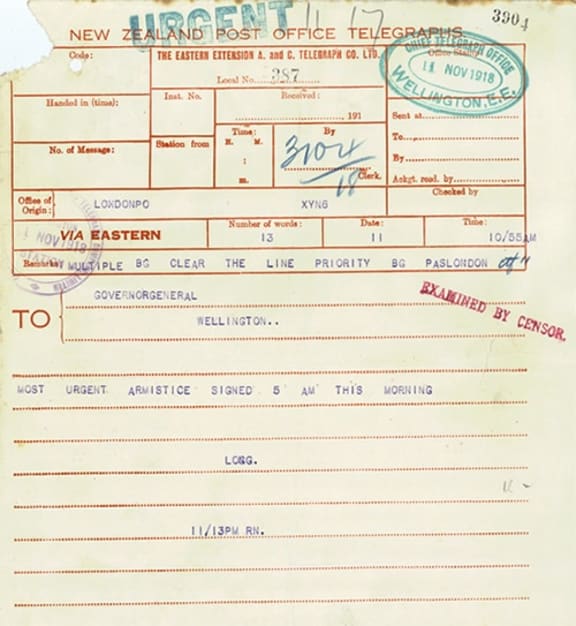 URGENT
3904
NEW ZEALAND POST OFFICE TELEGRAPHS.
Code:
THE EASTERN EXTENSION A. and C. TELEGRAPH CO. LTD.
Local No. 387
Office Stamp
CHIEF TELEGRAPH OFFICE
11 NOV 1918
WELLINGTON, E.E.
Handed in (time):
Inst. No.
Received:
191
Sent at
No. of Message:
Station from
Time:
H. M.
:
m.
By
3104/18
Clerk.
To
By
Ackgt. recd. by
Office of Origin:
LONDONPO
XYN6
Checked by
VIA EASTERN
Number of words:
13
Date:
11
Time:
10/55AM
NOV 1918
Remarks
MULTIPLE BG CLEAR THE LINE PRIORITY BG PASLONDON
EXAMINED BY CENSOR.
TO
GOVERNORGENERAL
WELLINGTON..
MOST URGENT ARMISTICE SIGNED 5 AM THIS MORNING
LONG.
11/13PM RN.